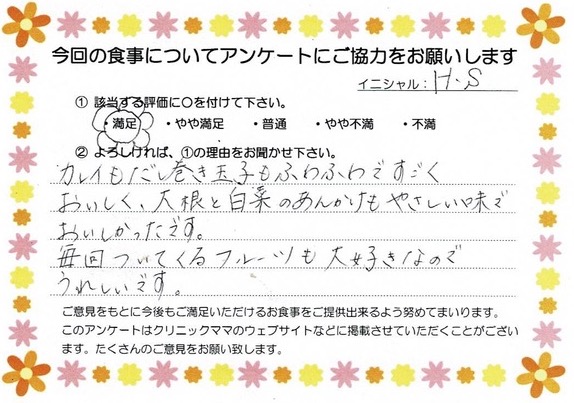 今回の食事についてアンケートにご協力をお願いします
イニシャル：H.S
① 該当する評価に○を付けて下さい。
・満足 ・やや満足 ・普通 ・やや不満 ・不満
② よろしければ、①の理由をお聞かせ下さい。
カレイもだし巻き玉子もふわふわですごく
おいしく、大根と白菜のあんかけもやさしい味で
おいしかったです。
毎回ついてくるフルーツも大好きなので
うれしいです。
ご意見をもとに今後もご満足いただけるお食事をご提供出来るよう努めてまいります。
このアンケートはクリニックママのウェブサイトなどに掲載させていただくことがござい
ます。たくさんのご意見をお願い致します。